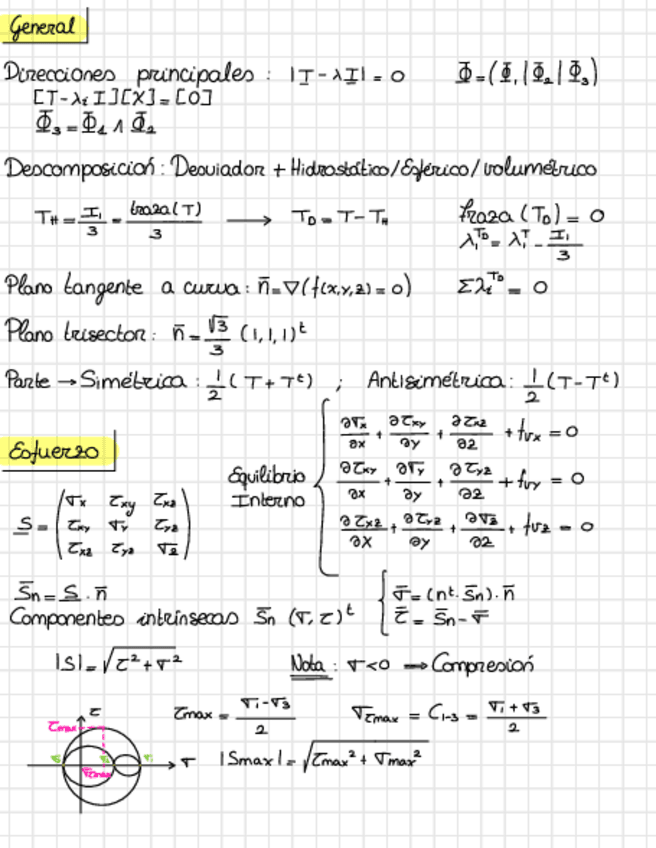 General
Direcciones principales : |T - λI| = 0   Φ = (Φ₁ | Φ₂ | Φ₃)
[T - λᵢ I][X] = [0]
Φ₃ = Φ₁ ∧ Φ₂
Descomposición : Desviador + Hidrostático/Esférico/volumétrico
T_H = I₁/3 = traza(T)/3 ⟶ T_D = T - T_H   traza (T_D) = 0
λᵢ^{T_D} = λᵢ^T - I₁/3
Plano tangente a curva : n̄ = ∇(f(x,y,z) = 0)   Σλᵢ^{T_D} = 0
Plano trisector : n̄ = √3/3 (1,1,1)^t
Parte → Simétrica : 1/2 (T + T^t) ; Antisimétrica : 1/2 (T - T^t)
Esfuerzo
Equilibrio Interno
∂σx/∂x + ∂τxy/∂y + ∂τxz/∂z + fvx = 0
∂τxy/∂x + ∂σy/∂y + ∂τyz/∂z + fvy = 0
∂τxz/∂x + ∂τyz/∂y + ∂σz/∂z + fvz = 0
S = (σx τxy τxz
τxy σy τyz
τxz τyz σz)
S̄n = S · n̄
Componentes intrínsecas S̄n (σ, τ)^t
σ̄ = (n^t · S̄n) · n̄
τ̄ = S̄n - σ̄
|S| = √(τ² + σ²)   Nota : σ<0 ⟹ Compresión
τmax = (σ₁ - σ₃)/2   στmax = C₁₋₃ = (σ₁ + σ₃)/2
|Smax| = √(τmax² + σmax²)
τ
τmax
σ
στmax